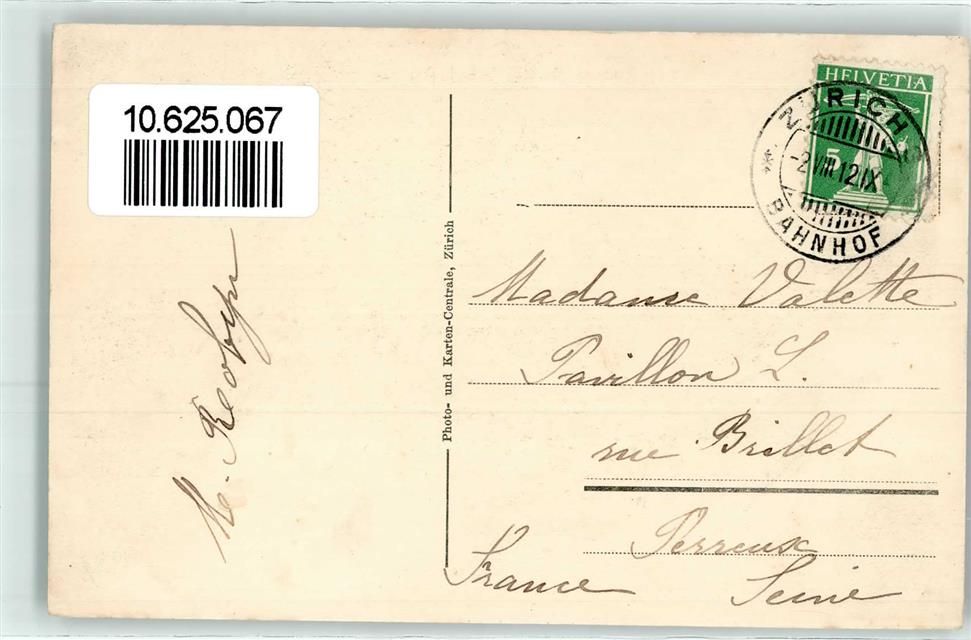 10.625.067
HELVETIA
5
ZÜRICH
-2.VIII.12.IX
BAHNHOF
Photo- und Karten-Centrale, Zürich
Madame Valette
Pavillon L.
rue Brillet
Perreux
France Seine